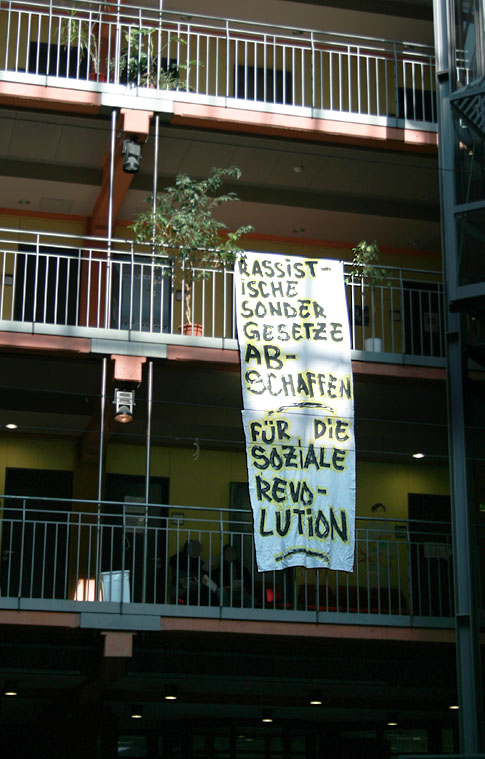 RASSIST-
ISCHE
SONDER
GESETZE
AB-
SCHAFFEN
FÜR DIE
SOZIALE
REVO-
LUTION